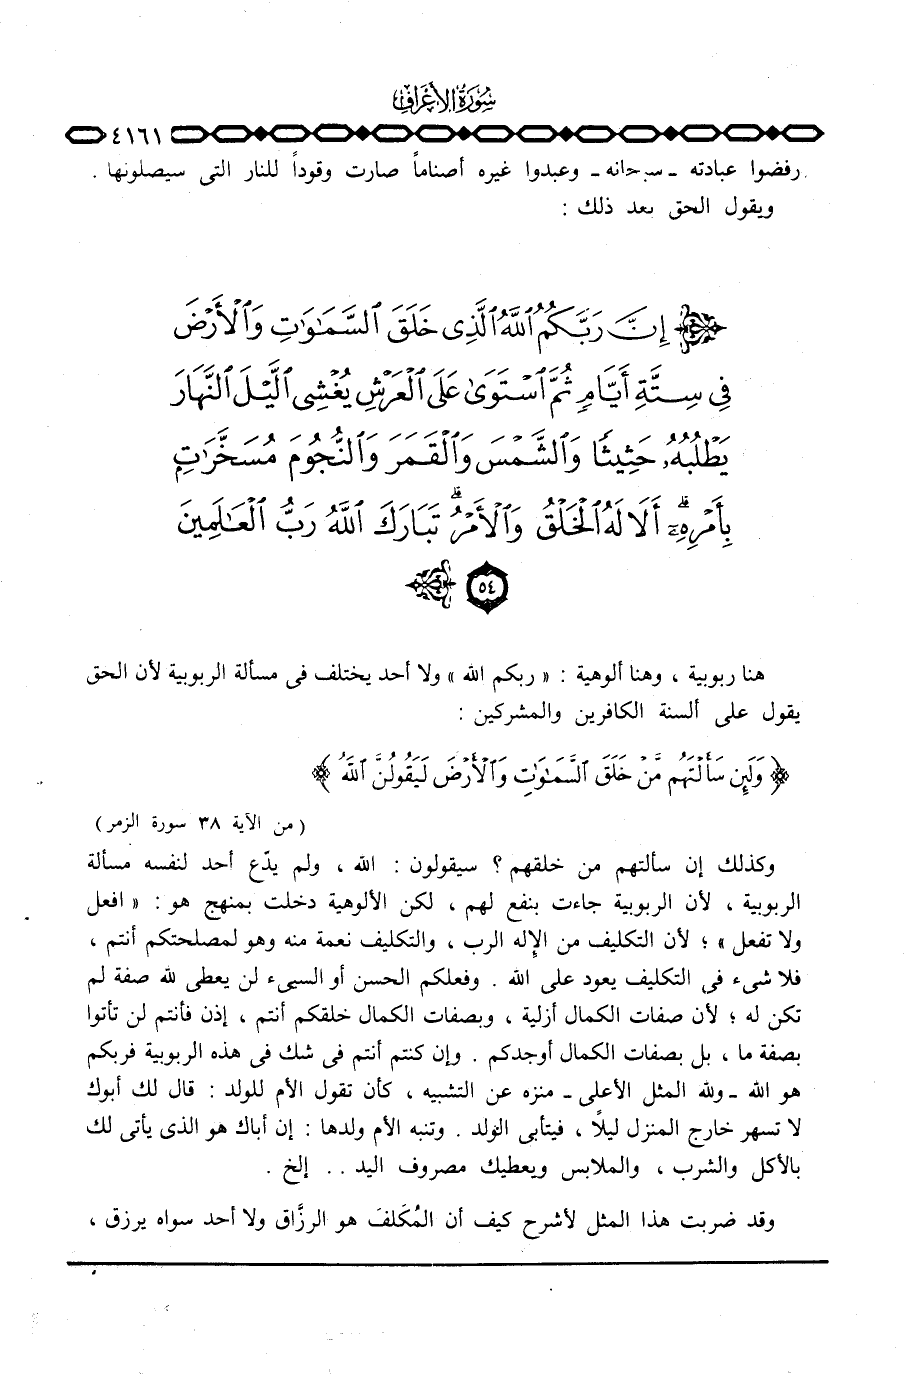 سُورَةُ الأَعْرَافِ
٤١٦١
رفضوا عبادته ـ سبحانه ـ وعبدوا غيره أصناماً صارت وقوداً للنار التى سيصلونها .
ويقول الحق بعد ذلك :
إِنَّ رَبَّكُمُ ٱللَّهُ ٱلَّذِى خَلَقَ ٱلسَّمَٰوَٰتِ وَٱلْأَرْضَ
فِى سِتَّةِ أَيَّامٍ ثُمَّ ٱسْتَوَىٰ عَلَى ٱلْعَرْشِ يُغْشِى ٱلَّيْلَ ٱلنَّهَارَ
يَطْلُبُهُۥ حَثِيثًا وَٱلشَّمْسَ وَٱلْقَمَرَ وَٱلنُّجُومَ مُسَخَّرَٰتٍۭ
بِأَمْرِهِۦٓ ۗ أَلَا لَهُ ٱلْخَلْقُ وَٱلْأَمْرُ ۗ تَبَارَكَ ٱللَّهُ رَبُّ ٱلْعَٰلَمِينَ
٥٤
هنا ربوبية ، وهنا ألوهية : « ربكم الله » ولا أحد يختلف فى مسألة الربوبية لأن الحق
يقول على ألسنة الكافرين والمشركين :
﴿ وَلَئِن سَأَلْتَهُم مَّنْ خَلَقَ ٱلسَّمَٰوَٰتِ وَٱلْأَرْضَ لَيَقُولُنَّ ٱللَّهُ ﴾
( من الآية ٣٨ سورة الزمر )
وكذلك إن سألتهم من خلقهم ؟ سيقولون : الله ، ولم يدّع أحد لنفسه مسألة
الربوبية ، لأن الربوبية جاءت بنفع لهم ، لكن الألوهية دخلت بمنهج هو : « افعل
ولا تفعل » ؛ لأن التكليف من الإله الرب ، والتكليف نعمة منه وهو لمصلحتكم أنتم ،
فلا شىء فى التكليف يعود على الله . وفعلكم الحسن أو السيىء لن يعطى لله صفة لم
تكن له ؛ لأن صفات الكمال أزلية ، وبصفات الكمال خلقكم أنتم ، إذن فأنتم لن تأتوا
بصفة ما ، بل بصفات الكمال أوجدكم . وإن كنتم أنتم فى شك فى هذه الربوبية فربكم
هو الله ـ ولله المثل الأعلى ـ منزه عن التشبيه ، كأن تقول الأم للولد : قال لك أبوك
لا تسهر خارج المنزل ليلاً ، فيتأبى الولد . وتنبه الأم ولدها : إن أباك هو الذى يأتى لك
بالأكل والشرب ، والملابس ويعطيك مصروف اليد .. إلخ .
وقد ضربت هذا المثل لأشرح كيف أن المُكَلفَ هو الرزَّاق ولا أحد سواه يرزق ،